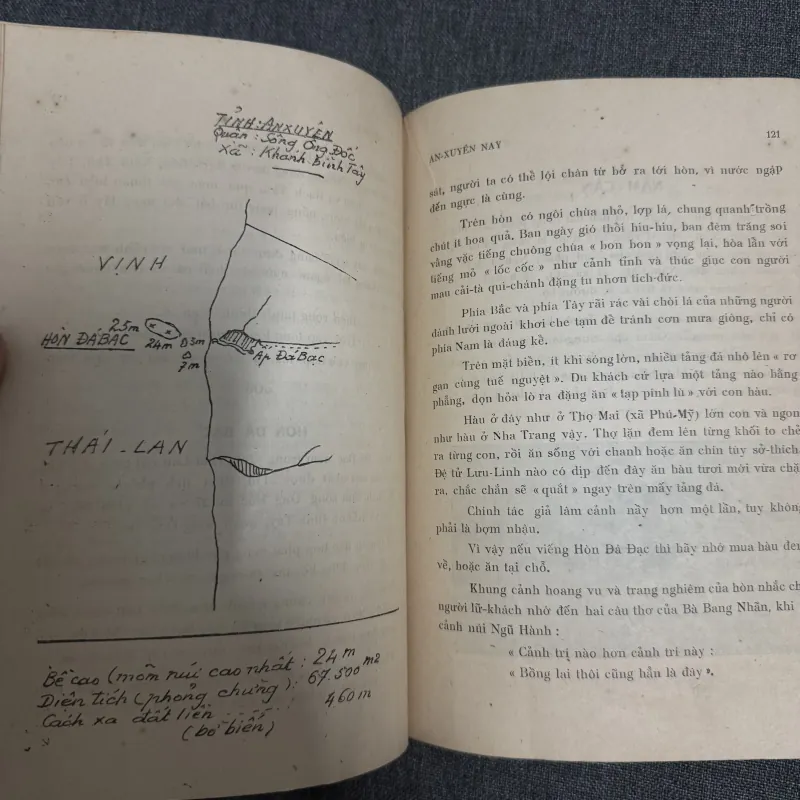 TỈNH: ANXUYÊN
Quận: Sông Ông Đốc
Xã: Khánh Bình Tây
VỊNH
25m
HÒN ĐÁ BẠC
24m
5m
7m
Ấp Đá Bạc
THÁI-LAN
Bề cao (mõm núi cao nhất: 24 m
Diện tích (phỏng chừng): 67.500 m2
Cách xa đất liền ........ 460 m
(bờ biển)
AN-XUYÊN NAY 121
sát, người ta có thể lội chân từ bờ ra tới hòn, vì nước ngập
đến ngực là cùng.
Trên hòn có ngôi chùa nhỏ, lợp lá, chung quanh trồng
chút ít hoa quả. Ban ngày gió thổi hiu-hiu, ban đêm trăng soi
vằng vặc tiếng chuông chùa « bon bon » vọng lại, hòa lẫn với
tiếng mõ « lốc cốc » như cảnh tỉnh và thúc giục con người
mau cải-tà qui-chánh đặng tu nhơn tích-đức.
Phía Bắc và phía Tây rãi rác vài chòi lá của những người
đánh lưới ngoài khơi che tạm để tránh cơn mưa giông, chỉ có
phía Nam là đáng kể.
Trên mặt biển, ít khi sóng lớn, nhiều tảng đá nhô lên « rơ
gan cùng tuế nguyệt ». Du khách cứ lựa một tảng nào bằng
phẳng, dọn hỏa lò ra đặng ăn « tạp pính lù » với con hàu.
Hàu ở đây như ở Thọ Mai (xã Phú-Mỹ) lớn con và ngon
như hàu ở Nha Trang vậy. Thợ lặn đem lên từng khối to chẻ
ra từng con, rồi ăn sống với chanh hoặc ăn chín tùy sở-thích.
Đệ tử Lưu-Linh nào có dịp đến đây ăn hàu tươi mới vừa chặt
ra, chắc chắn sẽ « quất » ngay trên mấy tảng đá.
Chính tác giả lâm cảnh nầy hơn một lần, tuy không
phải là bợm nhậu.
Vì vậy nếu viếng Hòn Đá Đạc thì hãy nhớ mua hàu đem
về, hoặc ăn tại chỗ.
Khung cảnh hoang vu và trang nghiêm của hòn nhắc ch
người lữ-khách nhớ đến hai câu thơ của Bà Bang Nhãn, khi
cảnh núi Ngũ Hành :
« Cảnh trị nào hơn cảnh trị này :
« Bồng lai thôi cũng hẳn là đây ».